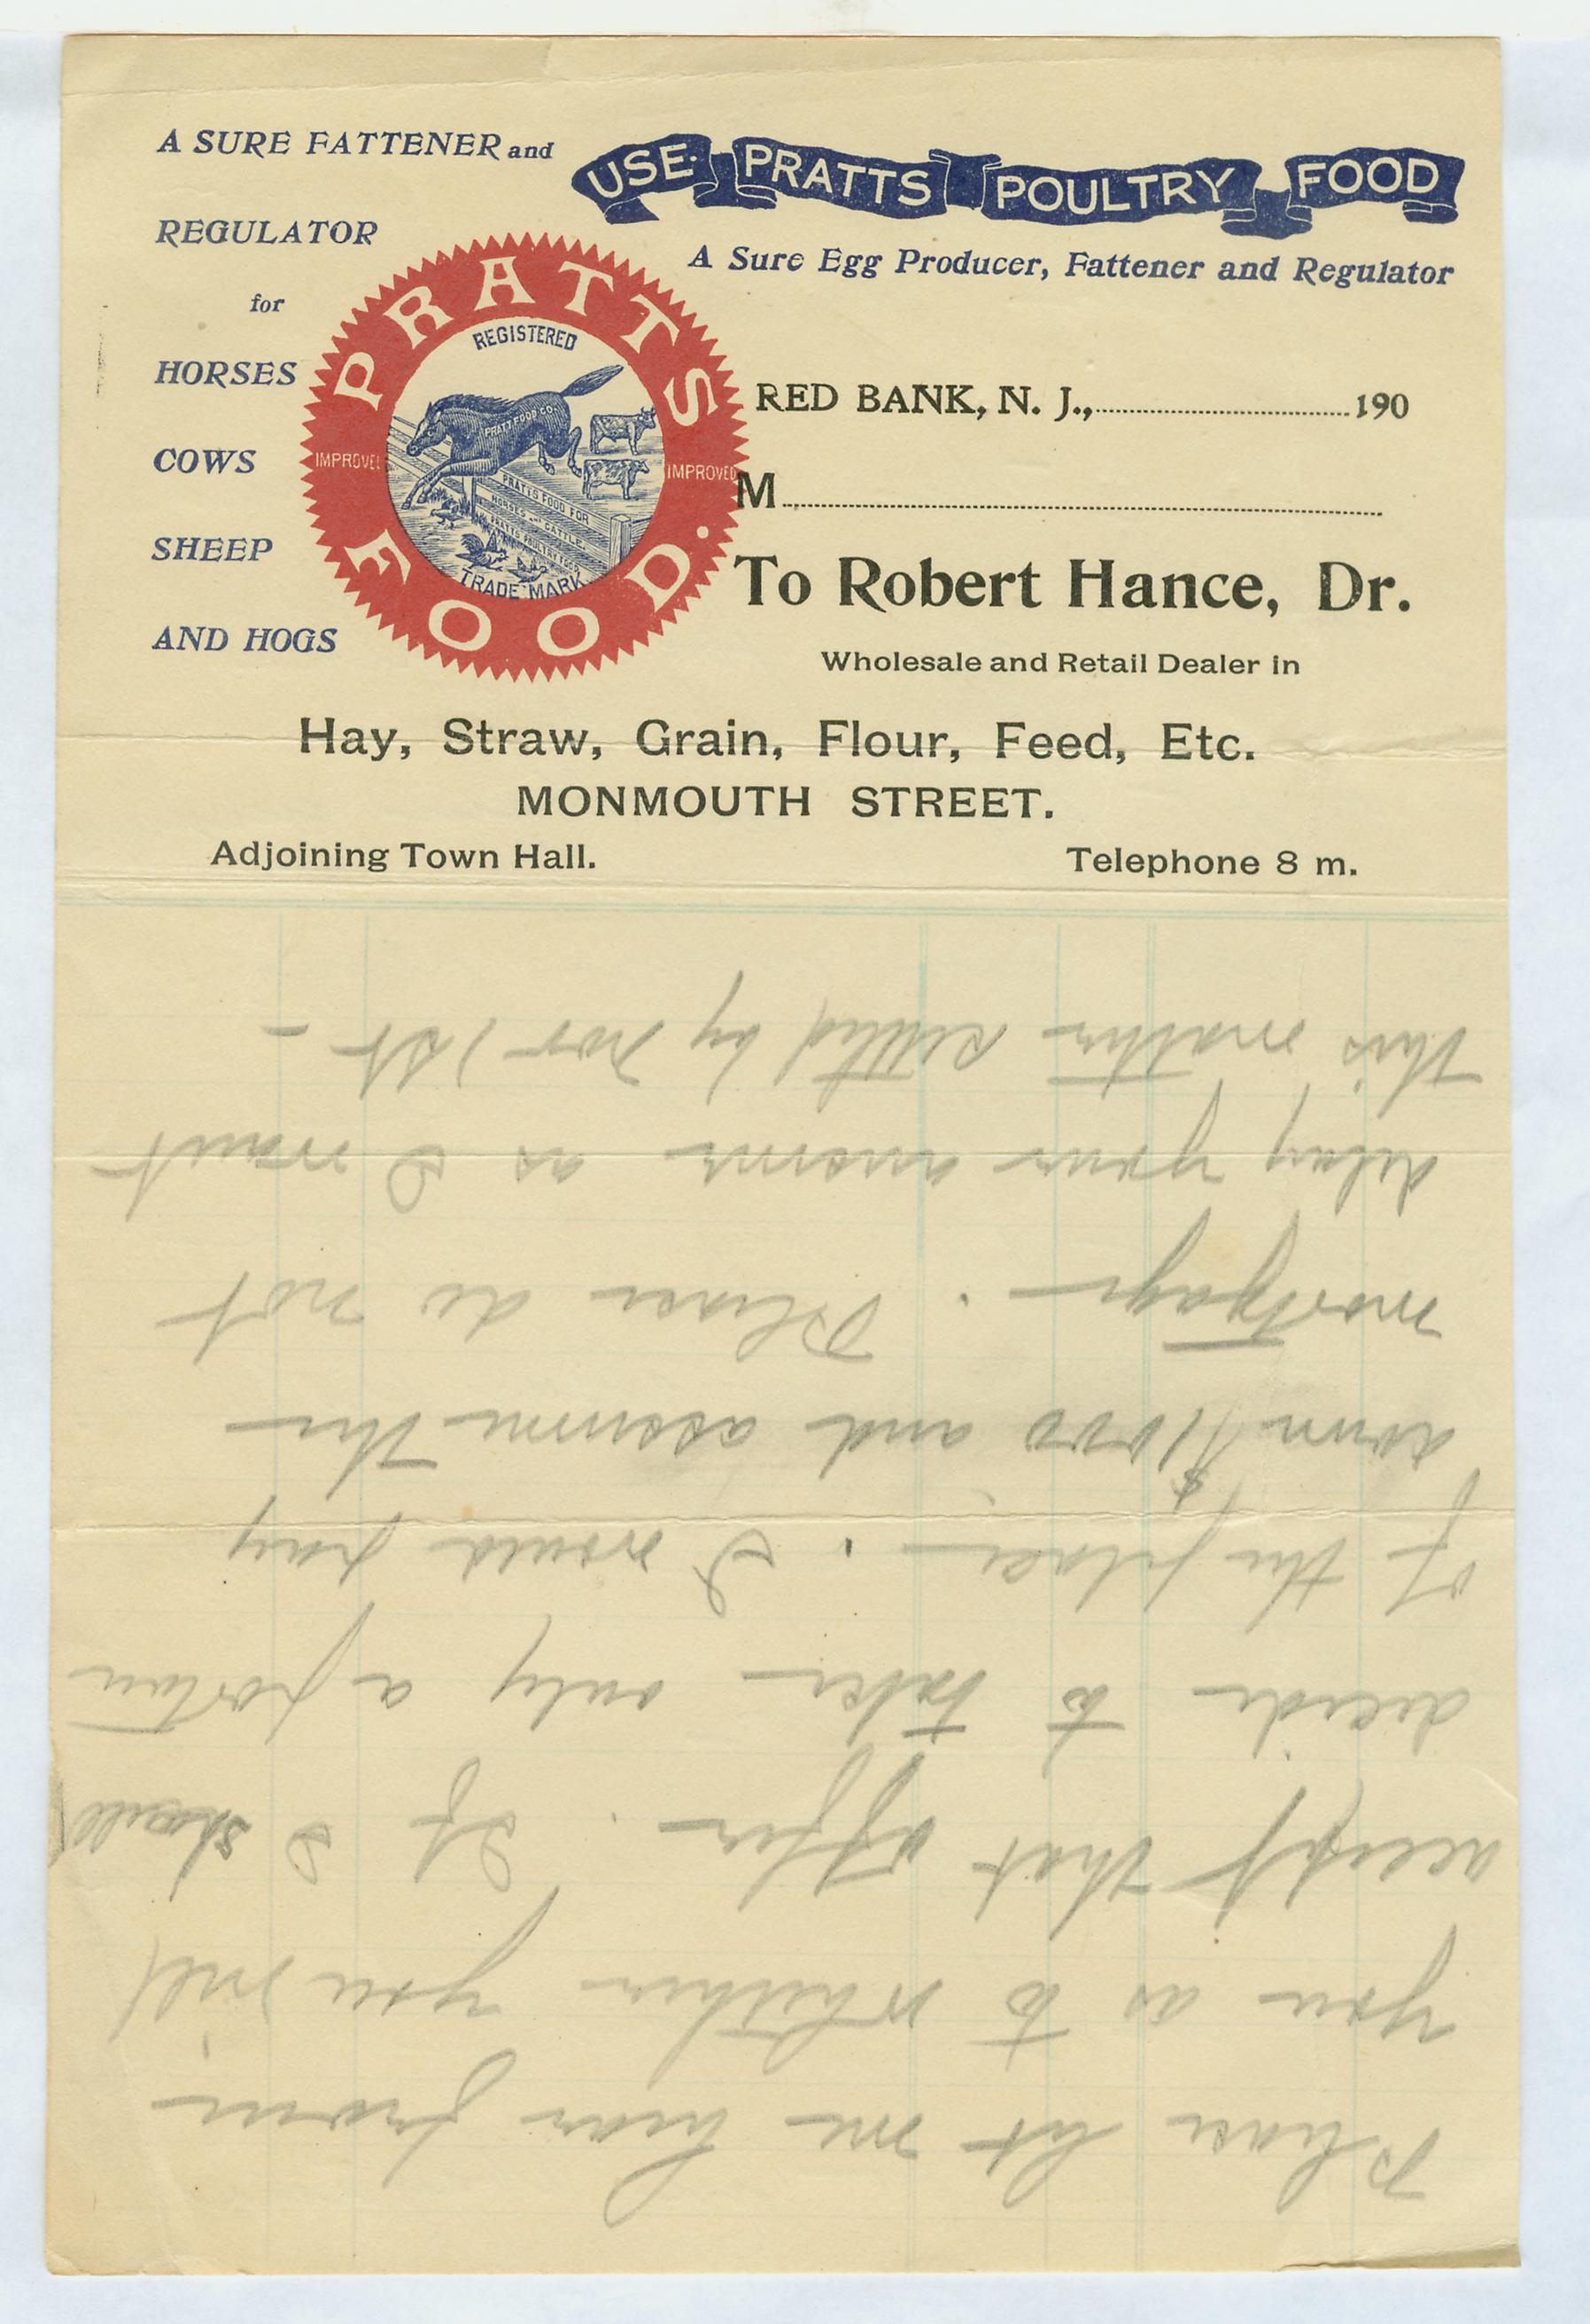 A SURE FATTENER and
REGULATOR
for
HORSES
COWS
SHEEP
AND HOGS
PRATTS FOOD.
REGISTERED
IMPROVED
IMPROVED
PRATT FOOD CO.
PRATTS FOOD FOR
HORSES AND CATTLE.
PRATTS POULTRY FOOD
TRADE MARK
USE PRATTS POULTRY FOOD
A Sure Egg Producer, Fattener and Regulator
RED BANK, N. J., 190
M
To Robert Hance, Dr.
Wholesale and Retail Dealer in
Hay, Straw, Grain, Flour, Feed, Etc.
MONMOUTH STREET.
Adjoining Town Hall.
Telephone 8 m.
Please let me hear from
you as to whether you will
accept that offer. If I should
decide to take only a portion
of the place. I would pay
down $1000 and assume the
mortgage. Please do not
delay your answer as I want
this matter settled by Nov 1st -